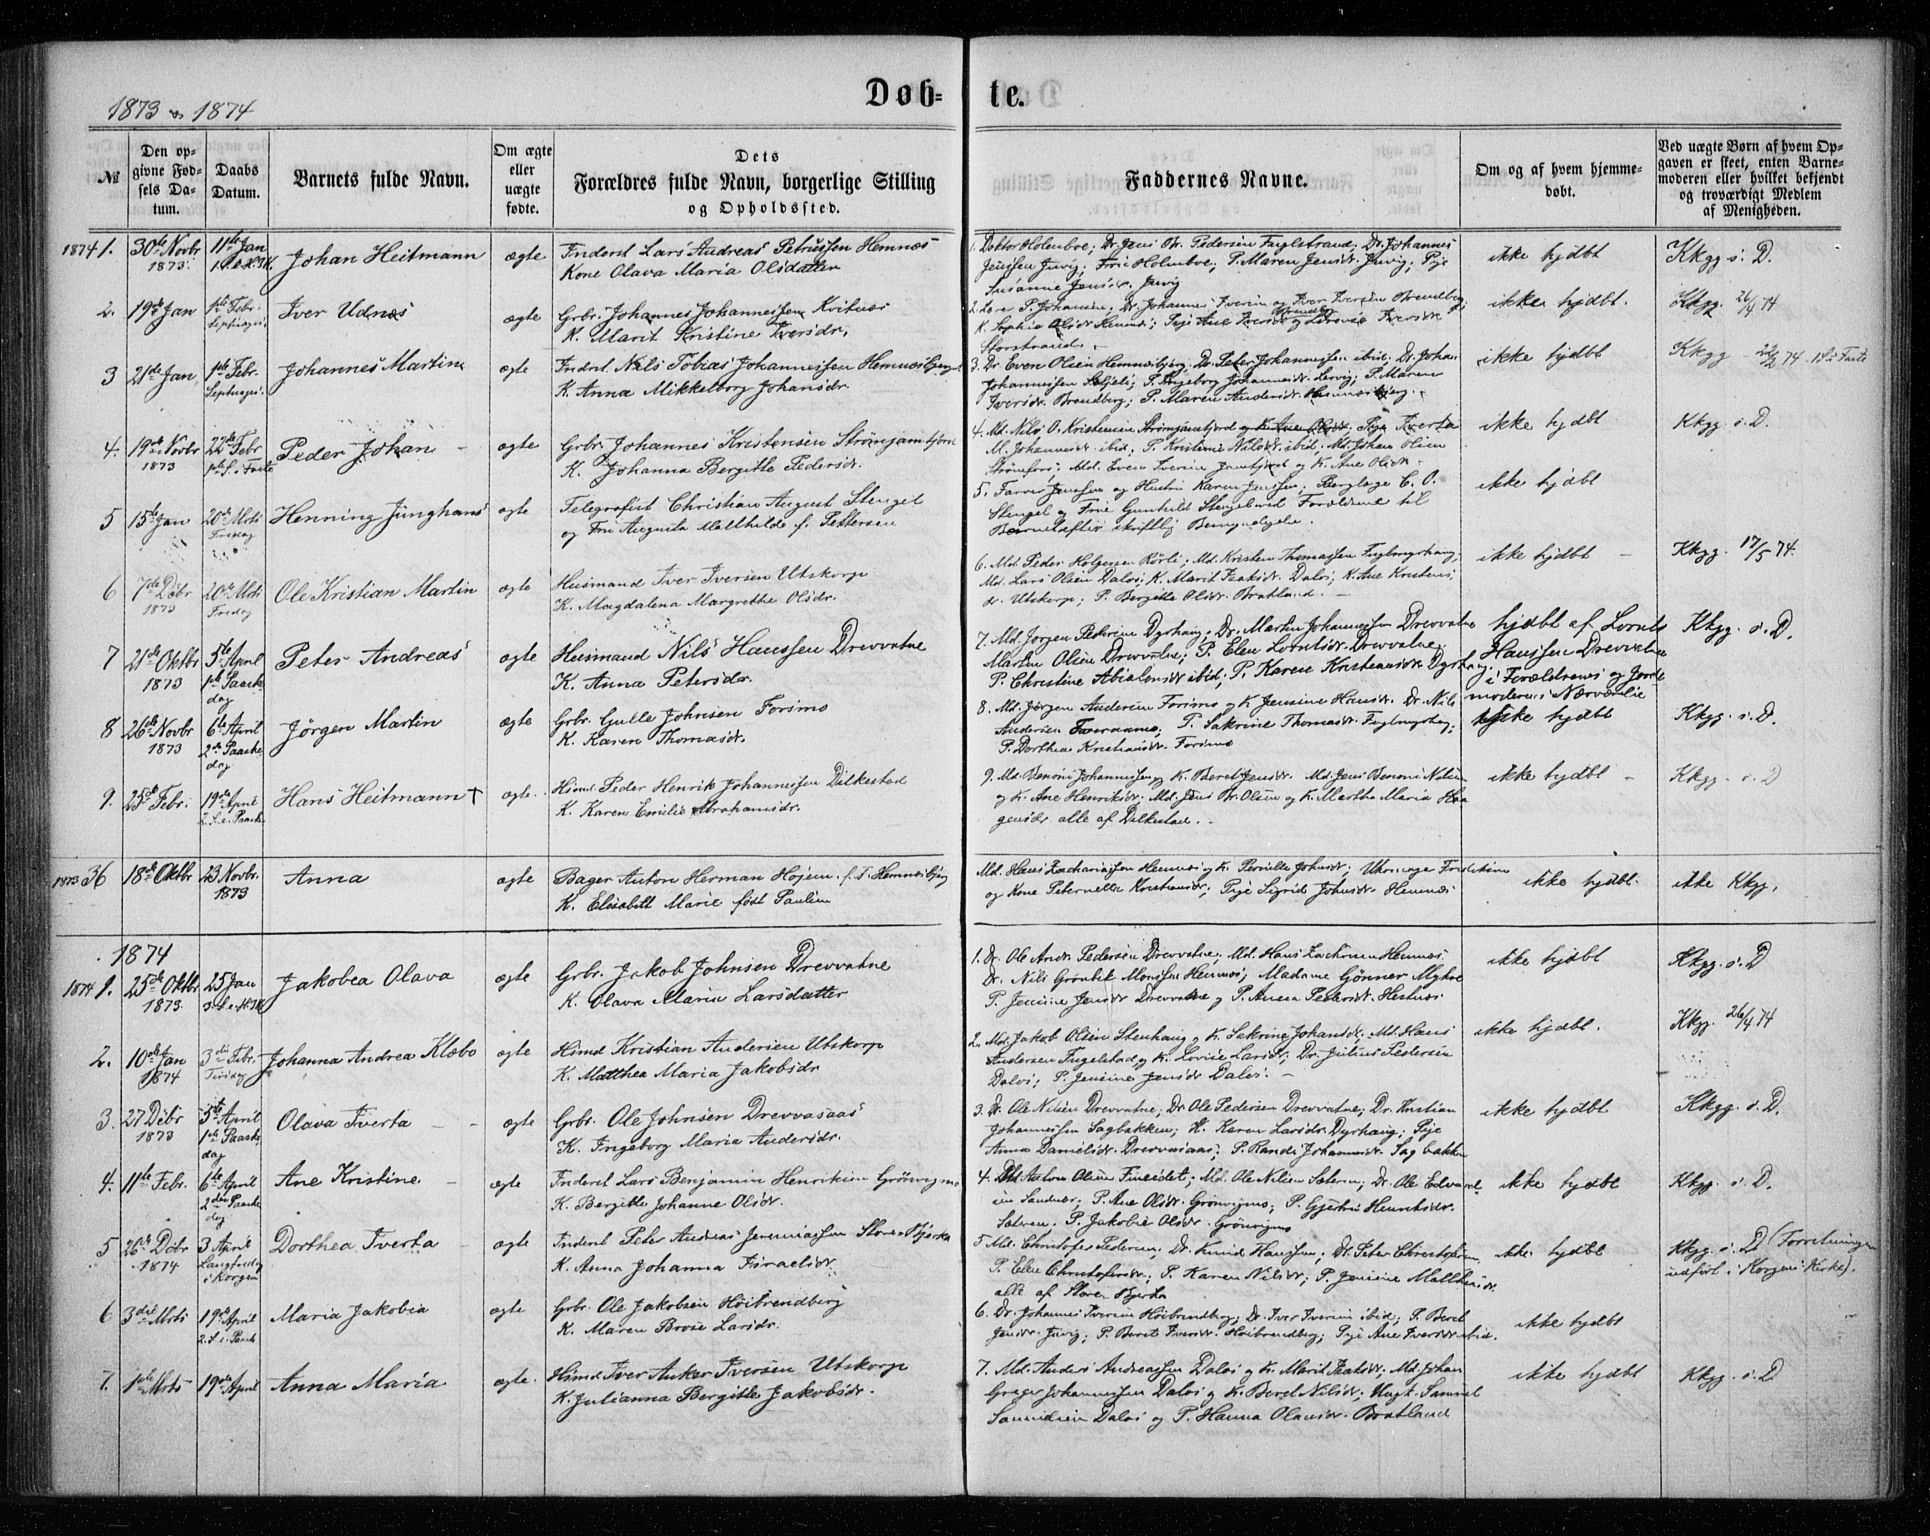 1873 & 1874
Døb=
te.
№
Den op=
givne Fød=
sels Da=
tum.
Daabs
Datum.
Barnets fulde Navn.
Om ægte
eller
uægte
fødte.
Dets
Forældres fulde Navn, borgerlige Stilling
og Opholdssted.
Faddernes Navne.
Om og af hvem hjemme=
døbt.
Ved uægte Børn af hvem Op=
gaven er skeet, enten Barne=
moderen eller hvilket bekjendt
og troværdigt Medlem
af Menigheden.
1874 1.
30te Novbr
1873.
11te Jan
Johan Heitmann
ægte
Inderst Lars Andreas Petersen Hemnes
Kone Olava Maria Olsdatter
1. Doktor Holmboe; Dr. Jens Chr. Pedersen Fuglstrand; Dr. Johannes
Jenssen Juvig; Frue Holmboe; P. Maren Jensdr. Juvig; Pige
Susanne Jensdr. Juvig
ikke hjdbt
Kkgg s. D.
2.
19de Jan
1ste Febr.
Septuages.
Iver Udnæs
ægte
Grbr. Johannes Johannessen Kvitnæs
K. Marit Kristine Iversdr.
2. Lars P. Johansen; Dr. Johannes Iversen og Iver Iversen Brendberg;
K. Sophie Olsdr Hemnes; Pige Ane Iversdr og Lovise Iversdr
Storstrand.
ikke hjdbt.
Kkgg. 26/4 74
3
21de Jan
1ste Febr.
Septuages.
Johannes Martin
ægte
Inderst Nils Tobias Johannessen Hemnesbjerget
K. Anna Mikkelborg Johansdr.
3. Dr. Even Olsen Hemnesbjerg; Dr. Peter Johannessen ibid; Dr. Johan
Johannessen Sæljeli; P. Ingeborg Johannesdr. Lervig; P. Maren
Iversdr. Brendberg; P. Maren Andersdr. Hemnesbjerg.
ikke hjdbt
Kkgg 22/2 74. 1 S. i Faste
4.
19de Novbr
1873
22de Febr
1ste S. i Faste
Peder Johan
ægte
Grbr. Johannes Kristensen Strømjamtjord
K. Johanna Bergitte Pedersdr.
4. Md. Nils O. Kristensen Strømjamtjord og K. Ane Olsdr. Pige Iverta
M. Johannesdr. ibid; P. Kristine Nilsdr. ibid; Md. Johan Olsen
Strømfors; Md. Even Iversen Jamtjord og K. Ane Olsdr.
ikke hjdbt
Kkgg. s. D.
5
15de Jan
20de Mrts
Fredag
Henning Junghans
ægte
Telegrafist Christian August Stengel
og Fru Augusta Matthilde f. Pettersen
5. Farver Jenssen og Hustru Karen Jenssen; Berglæge C. O.
Stengel og Frue Gunhild Stengel ved Forældrene til
Barnet efter skriftlig Bemyndigelse.
ikke hjdbt
6
7de Dcbr
1873
20de Mrts
Fredag
Ole Kristian Martin
ægte
Husmand Iver Iversen Utskarp
K. Magdalena Margrethe Olsdr.
6. Md. Peder Holgersen Rörli; Md. Kristen Thomassen Fuglmyrhaug;
Md. Lars Olsen Dalos; K. Marit Isaksdr. Dalos; K. Ane Kristens;
dr. Utskarp; P. Bergitte Olsdr. Bratland.
ikke hjdbt
Kkgg. 17/5 74.
7
21de Oktbr
1873
5te April
1ste Paaske
dag
Peter Andreas
ægte
Husmand Nils Hanssen Drevvatne
K. Anna Petersdr.
7. Md. Jørgen Pedersen Dyrhaug; Dr. Martin Johannessen Drevvatne
Martin Olsen Drevvatne; P. Elen Lorntsdr. Drevvatne;
P. Christine Abialonsdr ibid; P. Karen Kristiansdr. Dyrhaug.
hjdbt af Lornts
Hanssen Drevvatne
i Forældrenes og Jord-
moderens Nærværelse
Kkgg. s. D.
8
26de Novbr
1873
6te April
2den Paaske
dag
Jörgen Martin
ægte
Grbr. Gulle Johnsen Forsmo
K. Karen Thomasdr.
8. Md. Jørgen Andersen Forsmo og K. Jensine Hansdr. Dr. Nils
Andersen Tveraamo; P. Sakrine Thomasdr. Fuglmyrhaug;
P. Dorthea Kristiansdr. Forsmo
ikke hjdbt
Kkgg. s. D.
9.
23de Febr.
19de April
2. S. e. Paaske
Hans Heitmann †
ægte.
Husmd Peder Henrik Johannessen Dilkestad
K. Karen Emilie Abrahamsdr.
9. Md. Benoni Johannessen og K. Beret Jensdr. Md. Jens Benoni Nilsen
og K. Ane Henriksdr.; Md. Jens Chr. Olsen og K. Martha Maria Haa
gensdr alle af Dilkestad.
ikke hjdbt
Kkgg. s. D
1873 36
18de Oktbr
23 Novbr.
1873
Anna
ægte
Bager Anton Herman Højem f. T. Hemnesbjerg
K. Elisabett Marie født Paulsen
Md. Hans Zachariassen Hemnes og K. Pernille Johnsdr; Uhrmager
og Kone Peternelle Kristiansdr; Pige Sigrid Johnsdr Hemnes
ikke hjdbt.
ikke Kkgg.
1874
1874 1.
25de Oktbr
1873.
25 Jan
Jakobea Olava
ægte
Grbr. Jakob Johnsen Drevvatne
K. Olava Maria Larsdatter
1. Dr. Ole Andr. Pedersen Drevvatne; Md. Hans Zachriassen Hemnes;
Dr. Nils Grønbek Monssen Hemnes; Madame Gönner Mykve
P. Jensine Jensdr Drevvatne og P. Anna Pedersdr Hestnes
ikke hjdbt
Kkgg. s. D
2.
10de Jan
1874
3die Febr.
Tirsdag
Johanna Andrea Klæbo
ægte
Husmd Kristian Andersen Utskarp
K. Matthea Maria Jakobsdr
2. Md. Jakob Olsen Stenhaug og K. Sakrine Johansdr. Md. Hans
Andersen Ingelstad og K. Lovise Larsdr; Dr. Julius Pedersen
Dalos; P. Jensine Jensdr Dalos.
ikke hjdbt.
Kkgg. 26/4 74
3.
27 Dcbr
1873
5te April
1ste Paaske
dag
Olava Iverta
ægte
Grbr. Ole Johnsen Drevvasaas
K. Ingeborg Maria Andersdr.
3. Dr. Ole Nilsen Drevvatne; Dr. Ole Pedersen Drevvatne; Dr. Kristian
Johannessen Sagbakken; K. Karen Larsdr. Dyrhaug; Pige
Anna Danielsdr. Drevvasaas; P. Randi Johannesdr. Sagbakken
ikke hjdbt
Kkgg. s. D.
4.
11te Febr.
6te April
2den Paaske
dag
Ane Kristine
ægte
Inderst Lars Benjamin Henriksen Grönvigmo
K. Bergitte Johanne Olsdr.
4. Md Anton Olsen Finneidet; Md. Ole Nilsen Sæteren; Dr. Ole Edvard-
sen Sandnes; P. Ane Olsdr. Grönvigmo; P. Gjertru Henriksdr.
P. Jakobie Olsdr. Grönvigmo
ikke hjdbt
Kkgg. s. D.
5
26de Dcbr
1874
3 April
Langfredag
i Korgen
Dorthea Iverta
ægte
Inderst Peter Andreas Jeremiassen Store Bjerka
K. Anna Johanna Israelsdr
5 Md. Christofer Pedersen; Dr. Knud Hanssen; Dr. Peter Christophersen
P. Elen Christofersdr; P. Karen Nilsdr; P. Jensine Matthisdr.
alle af Store Bjerka
ikke hjdbt
Kkgg. s. D. (Forretningen
udført i Korgens Kirke).
6
3die Mrts
19de April
2. S. e. Paask
Maria Jakobia
ægte
Grbr. Ole Jakobsen Höibrendberg
K. Maren Brose Larsdr.
6. Dr. Johannes Iversen Höibrendberg; Dr. Iver Iversen ibid; P. Beret
Jensdr. Juvig; P. Beret Iversdr. Höibrendberg; Pige Ane Iversdr. ibid.
ikke hjdbt
7.
1ste Mrts
19de April
Anna Maria
ægte.
Husmd Iver Anker Iversen Utskarp
K. Julianna Bergitte Jakobsdr.
7. Md. Anders Andreassen Dalos og K. Marit Isaksdr; Md. Johan
Greger Johannessen Dalos og K. Beret Nilsdr; Ungk. Samuel
Samuelsen Dalos og P. Hanna Olausdr. Bratland
ikke hjdbt
Kkgg. s. D